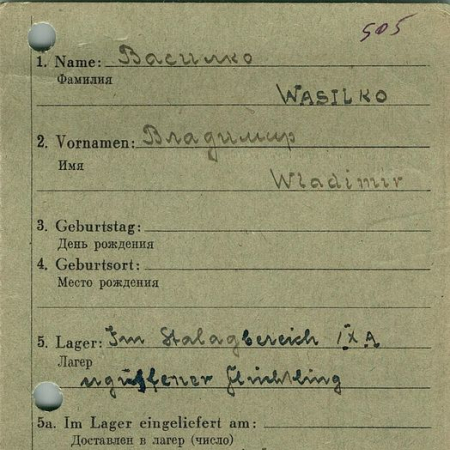 505
1. Name: Василко
Фамилия
WASILKO
2. Vornamen: Владимир
Имя
Wladimir
3. Geburtstag:
День рождения
4. Geburtsort:
Место рождения
5. Lager: Im Stalagbereich IX A
Лагер
Flüchtling
5a. Im Lager eingeliefert am:
Доставлен в лагер (число)